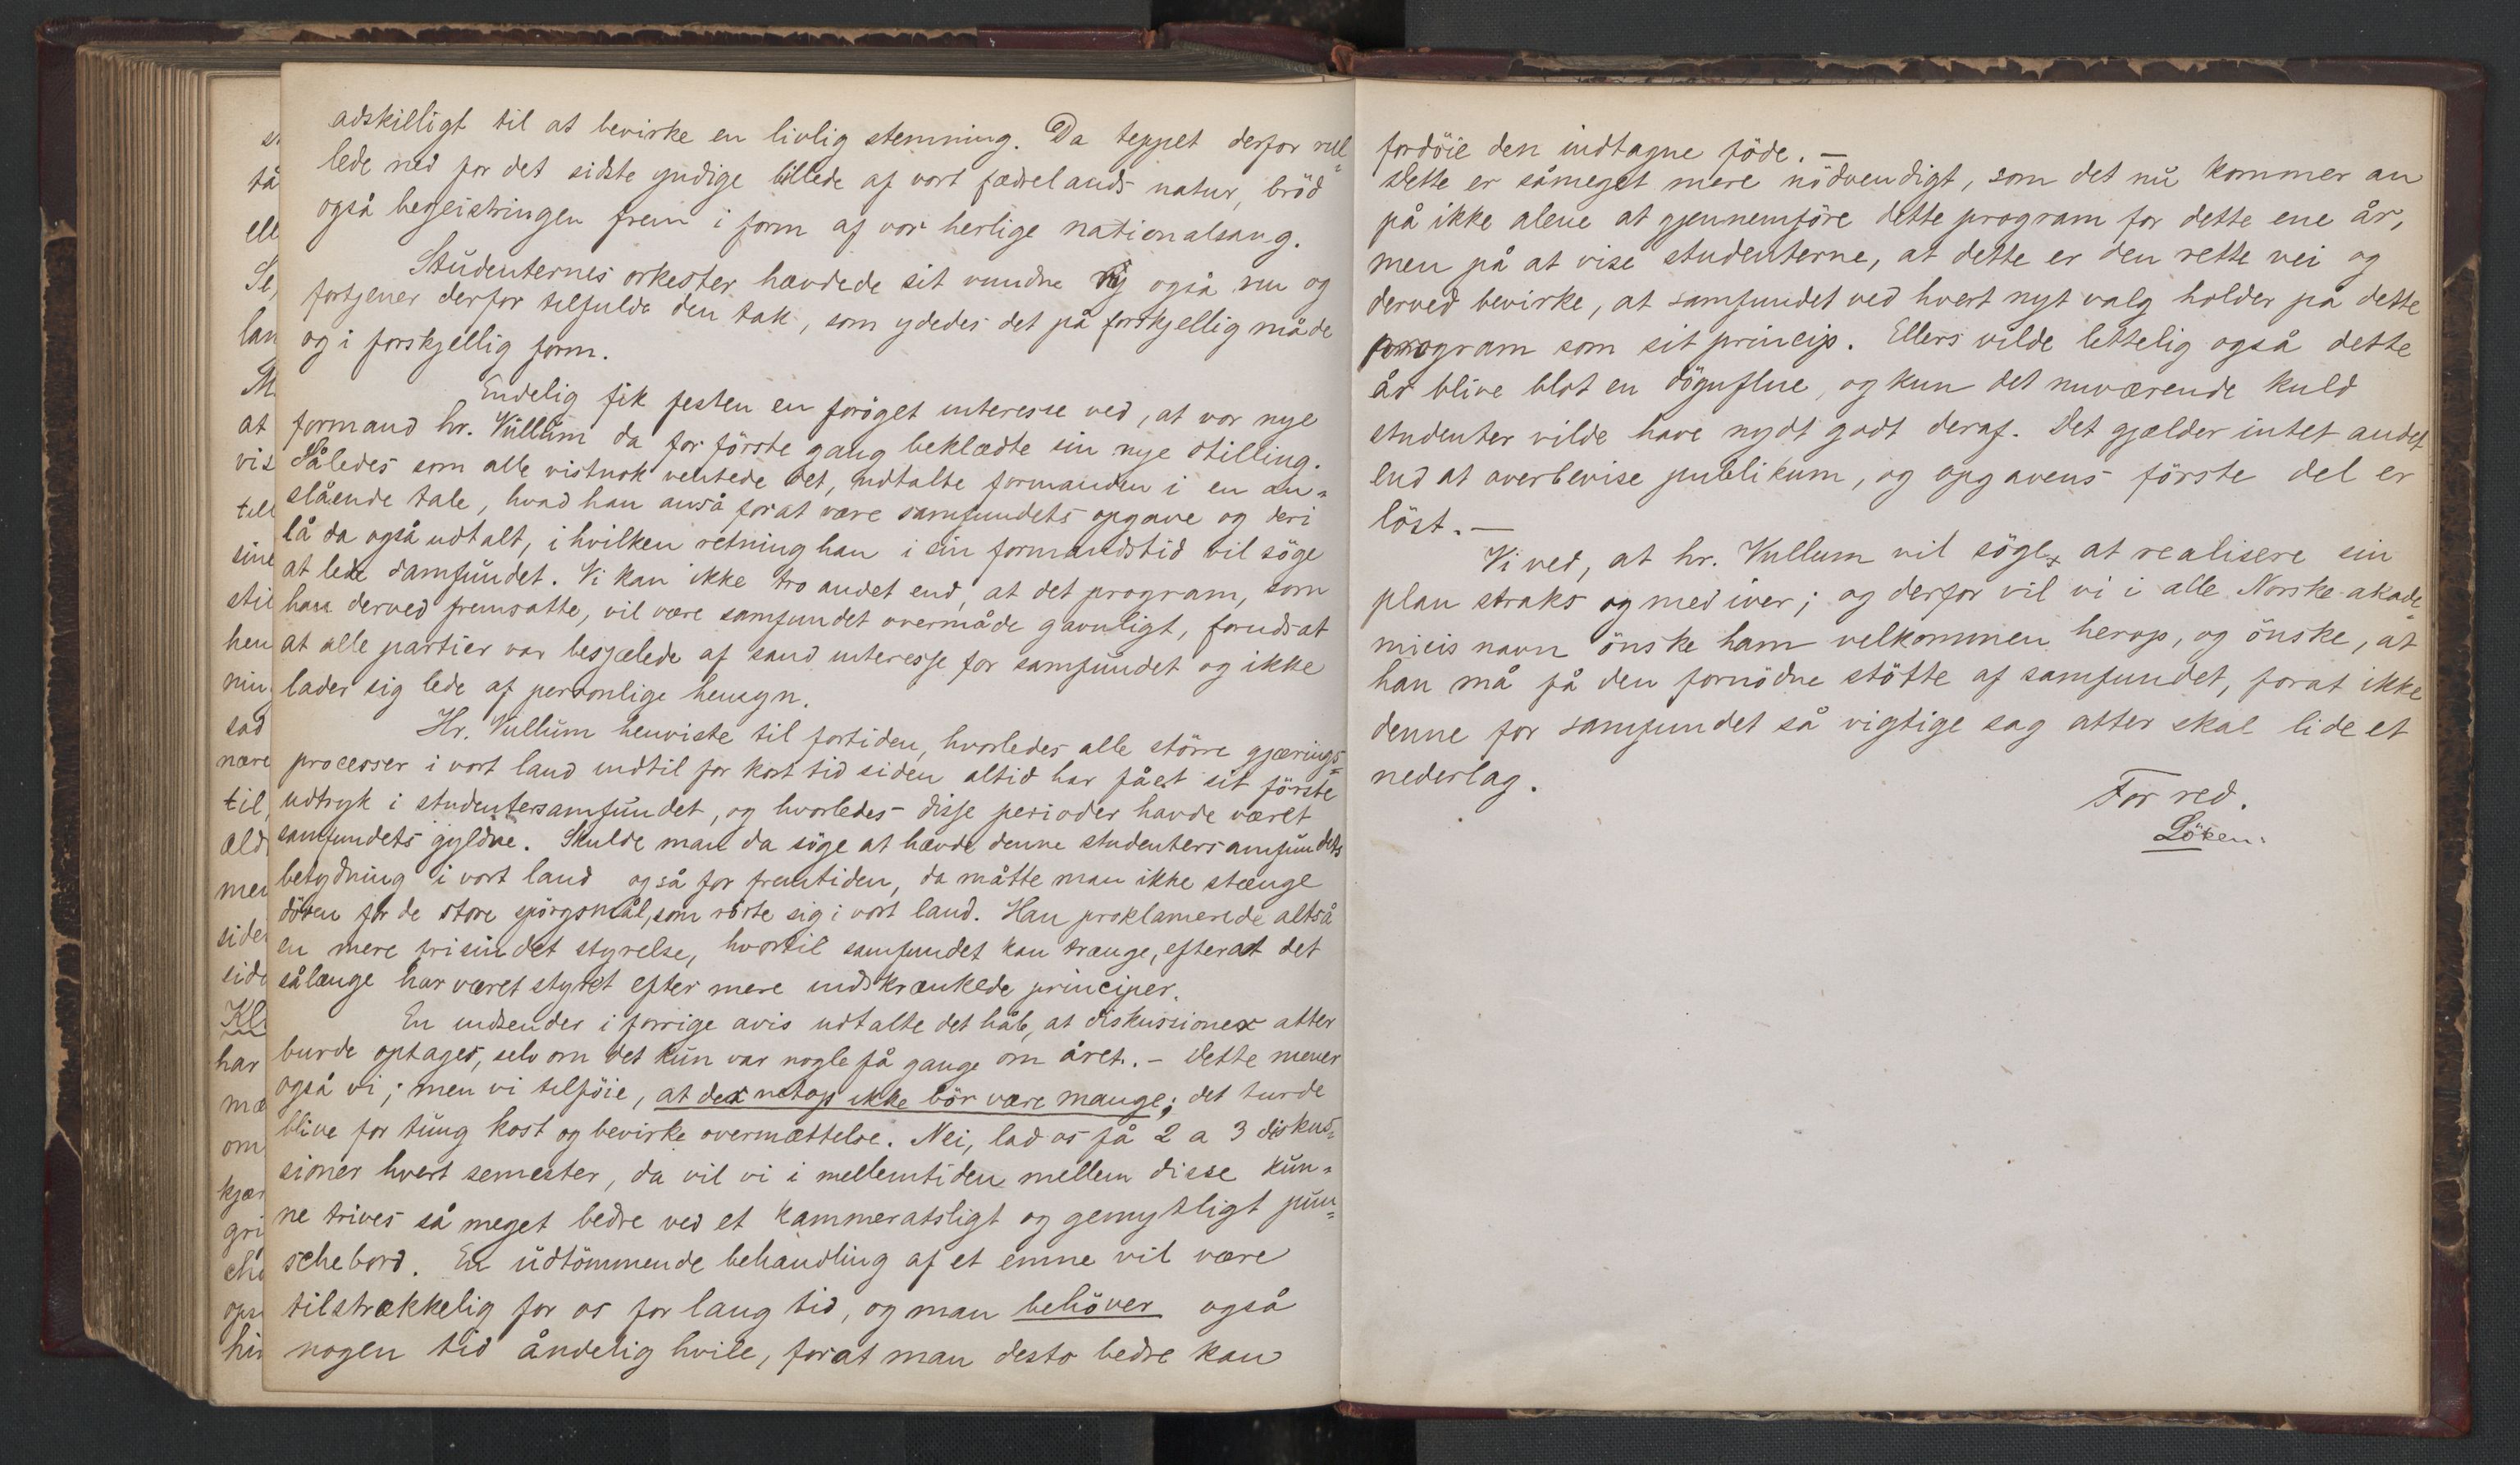 adskilligt til at bevirke en livlig stemning. Da teppet derfor rul=
lede ned for det sidste yndige billede af vort fædrelands natur, bröd
også begeistringen frem i form af vor herlige nationalsang.
Studenternes orkester hævdede sit vundne ry også nu og
fortjener derfor tilfulde den tak, som ydedes det på forskjellig måde
og i forskjellig form.
Endelig fik festen en foröget interesse ved, at vor nye
formand hr. Vullum da for förste gang beklædte sin nye stilling.
Således som alle vistnok ventede det, udtalte formanden i en an=
slående tale, hvad han anså forat være samfundets opgave og deri
lå da også udtalt, i hvilken retning han i sin formandstid vil söge
at lede samfundet. Vi kan ikke tro andet end, at det program, som
han derved fremsatte, vil være samfundet overmåde gavnligt, forudsat
at alle partier var besjælede af sand interesse for samfundet og ikke
lader sig lede af personlige hensyn.
Hr. Vullum henviste til fortiden, hvorledes alle större gjærings=
processer i vort land indtil for kort tid siden altid har fået sit förste
udtryk i studentersamfundet, og hvorledes disse perioder havde været
samfundets gyldne. Skulde man da söge at hævde denne studentersamfundets
betydning i vort land også for fremtiden, da måtte man ikke stænge
dören for de store spörgsmål, som rörte sig i vort land. Han proklamerede altså
en mere frisindet styrelse, hvortil samfundet kan trænge, efterat det
sålænge har været styret efter mere indskrænkede principer.
En indsender i forrige avis udtalte det håb, at diskussioner atter
burde optages, selv om det kun var nogle få gange om året. - Dette mener
også vi; men vi tilföie, at der netop ikke bör være mange; det turde
blive for tung kost og bevirke overmættelse. Nei, lad os få 2 a 3 diskus=
sioner hvert semester, da vil vi i mellemtiden mellem disse kun=
ne trives så meget bedre ved et kammeratsligt og gemytligt pun=
schebord. En udtömmende behandling af et emne vil være
tilstrækkelig for os for lang tid, og man behöver også
nogen tid åndelig hvile, forat man desto bedre kan
fordöie den indtagne föde. -
Dette er såmeget mere nödvendigt, som det nu kommer an
på ikke alene at gjennemföre dette program for dette ene år,
men på at vise studenterne, at dette er den rette vei og
derved bevirke, at samfundet ved hvert nyt valg holder på dette
program som sit princip. Ellers vilde lettelig også dette
år blive blot en dögnflue, og kun det nuværende kuld
studenter vilde have nydt godt deraf. Det gjælder intet andet
end at overbevise publikum, og opgavens förste del er
löst. -
Vi ved, at hr. Vullum vil söge at realisere sin
plan straks og med iver; og derfor vil vi i alle Norske akade=
micis navn önske ham velkommen herop, og önske, at
han må få den fornödne stötte af samfundet, forat ikke
denne for samfundet så vigtige sag atter skal lide et
nederlag.
For red.
Löken.